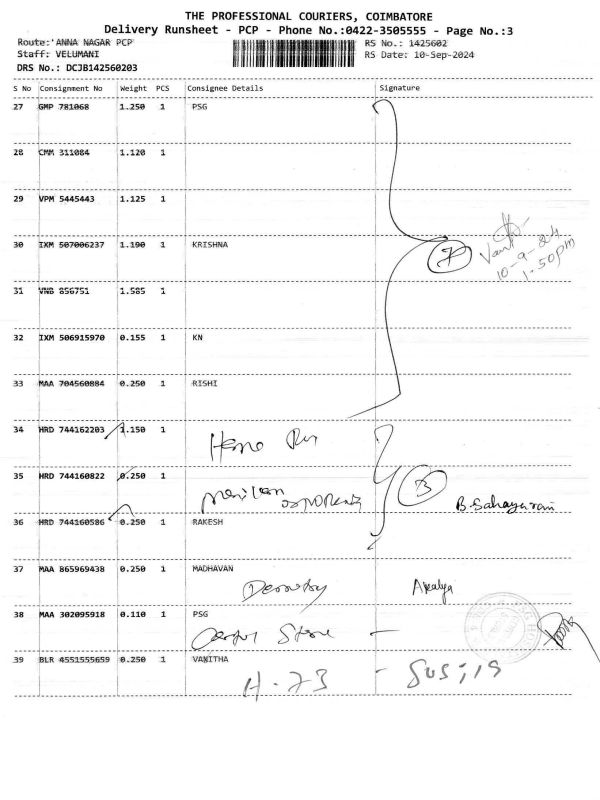 THE PROFESSIONAL COURIERS, COIMBATORE
Delivery Runsheet - PCP - Phone No.:0422-3505555 - Page No.:3
Route:'ANNA NAGAR PCP
RS No.: 1425602
Staff: VELUMANI
RS Date: 10-Sep-2024
DRS No.: DCJB142560203
S No Consignment No Weight PCS Consignee Details Signature
27 GMP 781068 1.250 1 PSG
28 CMM 311084 1.120 1
29 VPM 5445443 1.125 1
30 IXM 507006237 1.190 1 KRISHNA
7
10-9-24
1.50pm
31 VNB 856751 1.585 1
32 IXM 506915970 0.155 1 KN
33 MAA 704560884 0.250 1 RISHI
34 HRD 744162203 1.150 1
35 HRD 744160822 0.250 1
3 B. Sahayarani
36 HRD 744160586 0.250 1 RAKESH
37 MAA 865969438 0.250 1 MADHAVAN
38 MAA 302095918 0.110 1 PSG
Store -
39 BLR 4551555659 0.250 1 VANITHA
H-73 -